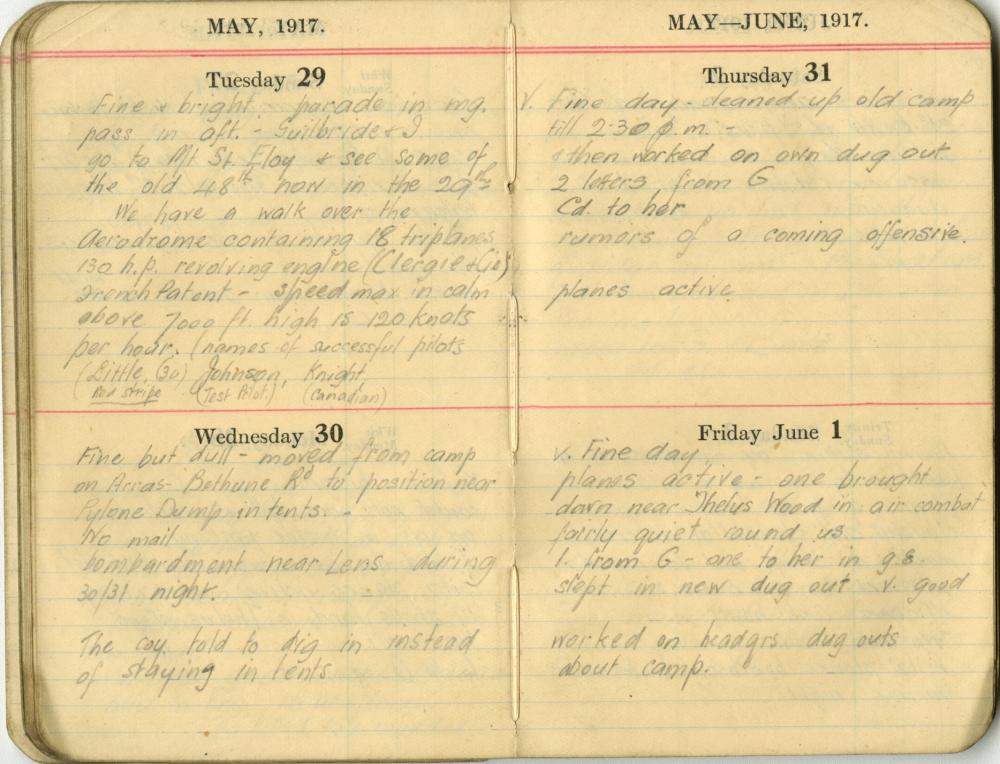 MAY, 1917.
Tuesday 29
Fine & bright parade in mg.
pass in aft. - Guilbride & I
go to Mt St. Eloy & see some of
the old 48th now in the 29th
We have a walk over the
Aerodrome containing 18 triplanes
130 h.p. revolving engine (Clergie & Co)
French Patent - speed max in calm
above 7000 ft high is 120 knots
per hour. (names of successful pilots
(Little, (30) Johnson, Knight,
Red stripe (Test Pilot.) (Canadian)
Wednesday 30
Fine but dull - moved from camp
on Arras-Bethune Rd to position near
Pylone Dump in tents. -
No mail
bombardment near Lens during
30/31 night.
The coy. told to dig in instead
of staying in tents
MAY—JUNE, 1917.
Thursday 31
V. Fine day - cleaned up old camp
till 2-30 p.m. -
& then worked on own dug out
2 letters from G
Cd. to her
rumors of a coming offensive.
planes active
Friday June 1
v. Fine day
planes active - one brought
down near Thelus Wood in air combat
fairly quiet round us.
l. from G - one to her in g.e.
slept in new dug out v. good
worked on headqrs dug outs
about camp.